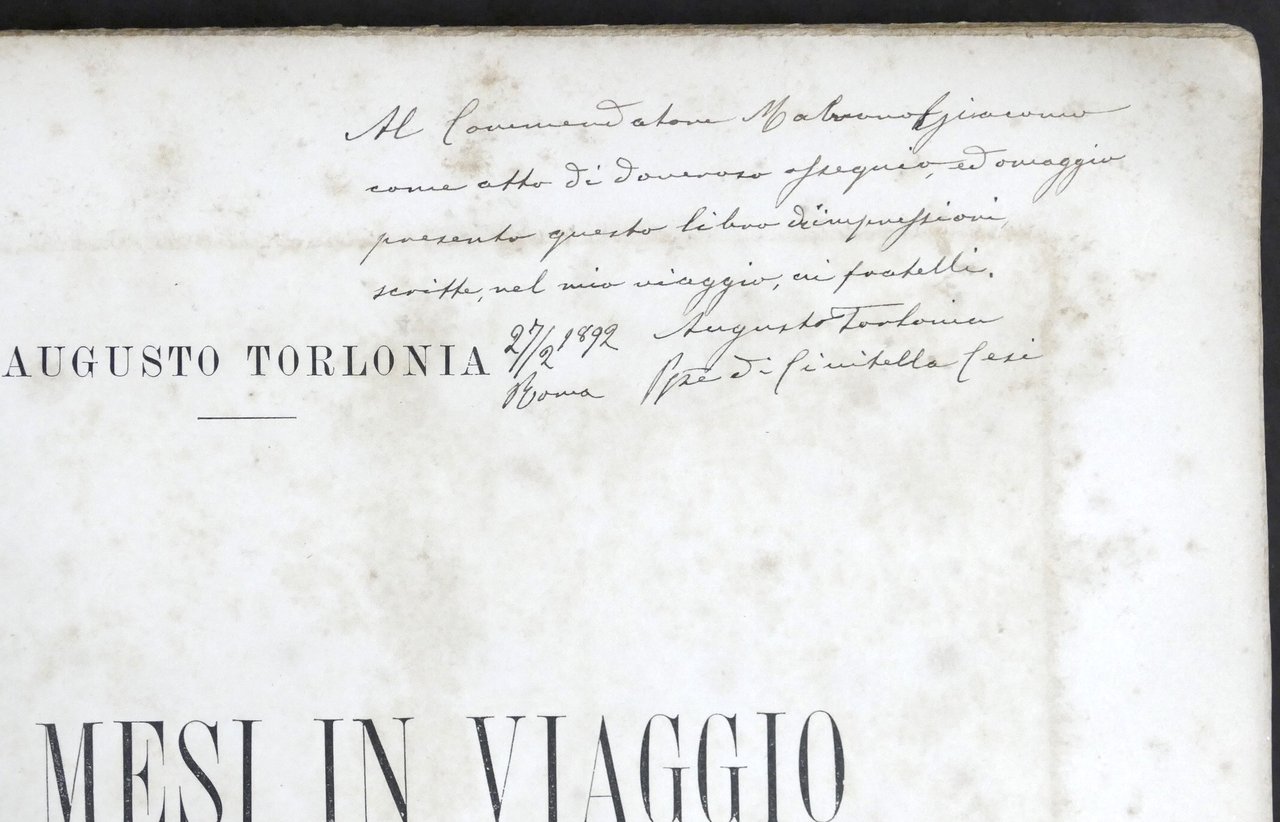 Al Commendatore Malvano Giacomo
come atto di doveroso ossequio, ed omaggio
presento questo libro d'impressioni,
scritte, nel mio viaggio, ai fratelli.
27/2 1892 Augusto Torlonia
Roma Ppe di Civitella Cesi
AUGUSTO TORLONIA
MESI IN VIAGGIO